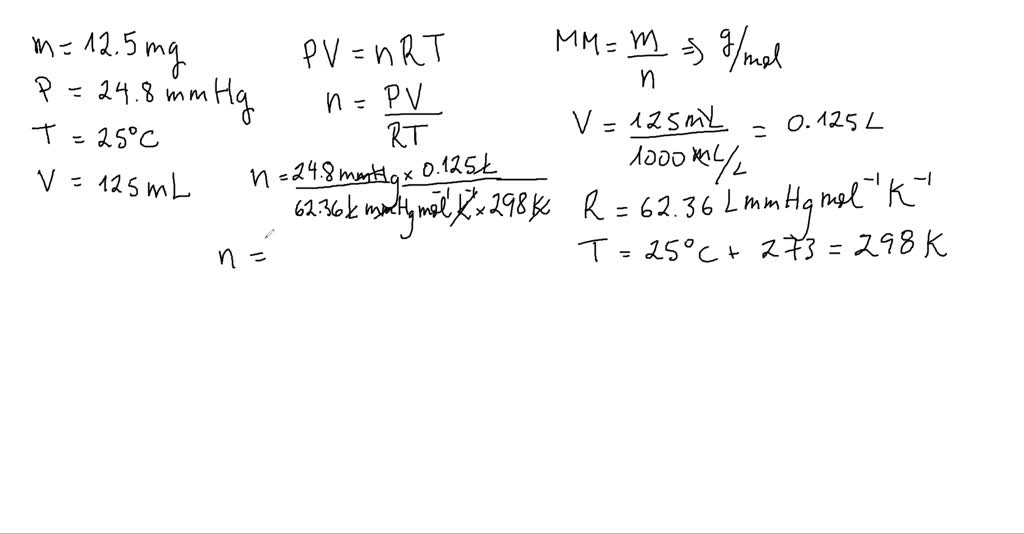 m = 12.5 mg
P = 24.8 mmHg
T = 25°C
V = 125 mL
PV = nRT
n = PV / RT
n = 24.8 mmHg × 0.125 L / 62.36 L mmHg mol⁻¹ K⁻¹ × 298 K
n =
MM = m / n ⇒ g/mol
V = 125 mL / 1000 mL/L = 0.125 L
R = 62.36 L mmHg mol⁻¹ K⁻¹
T = 25°C + 273 = 298 K